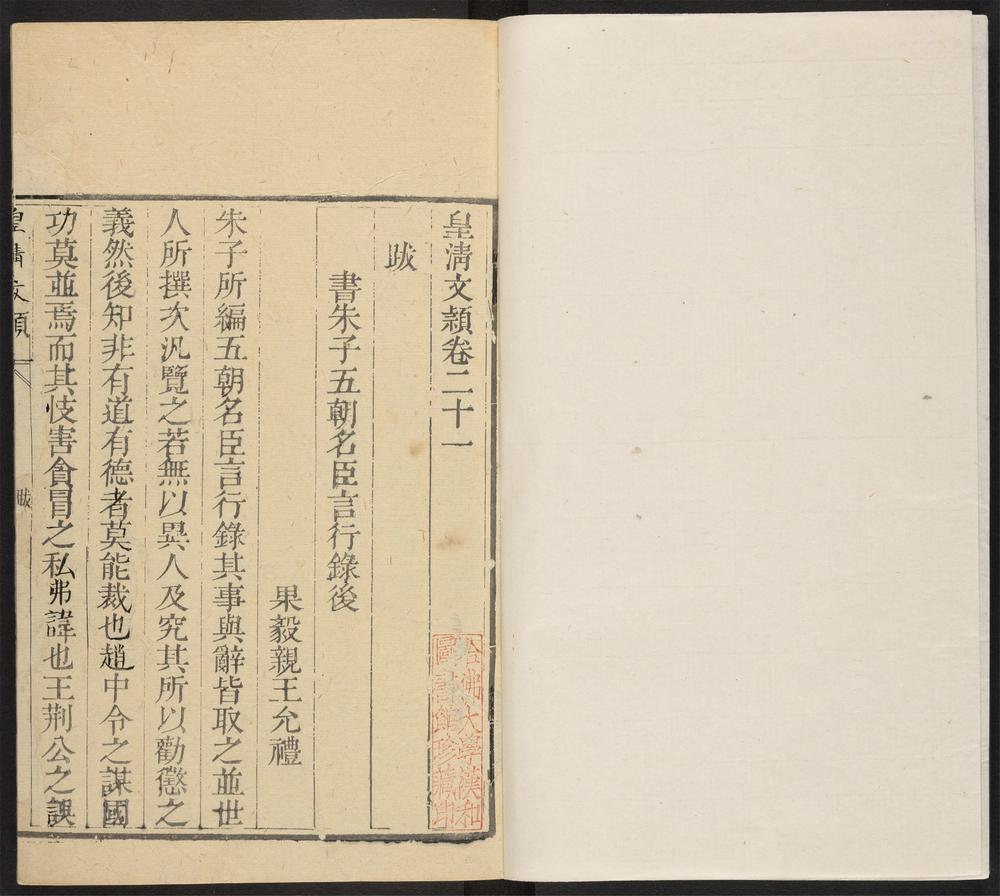 皇清文穎卷二十一
跋
書朱子五朝名臣言行錄後
果毅親王允禮
朱子所編五朝名臣言行錄其事與辭皆取之並世
人所撰次汎覽之若無以異人及究其所以勸懲之
義然後知非有道有德者莫能裁也趙中令之謀國
功莫並焉而其忮害貪冒之私弗諱也王荆公之誤
皇清文穎
跋
哈佛大學漢和
圖書館珍藏印